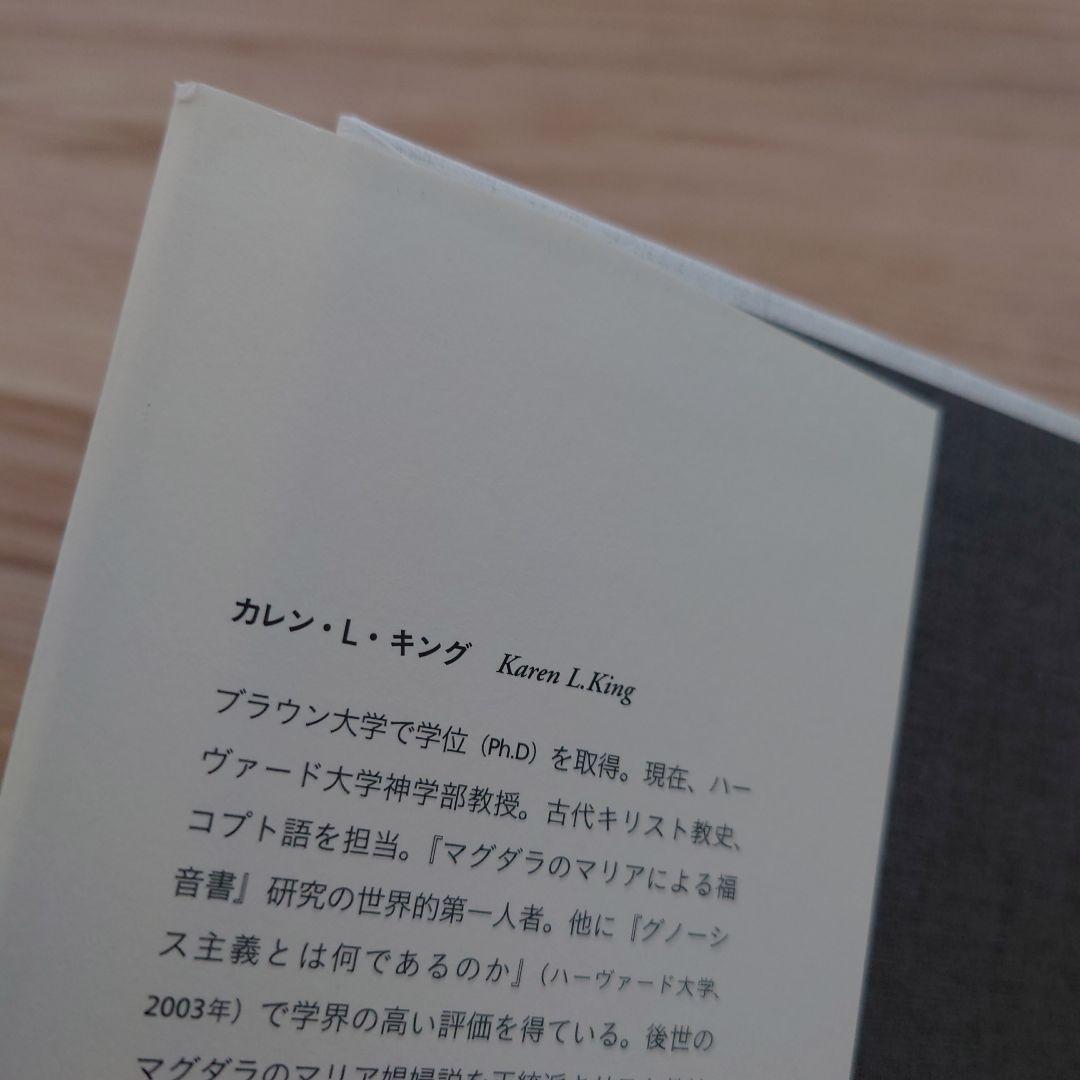 カレン・L・キング Karen L.King
ブラウン大学で学位（Ph.D）を取得。現在、ハー
ヴァード大学神学部教授。古代キリスト教史、
コプト語を担当。『マグダラのマリアによる福
音書』研究の世界的第一人者。他に『グノーシ
ス主義とは何であるのか』（ハーヴァード大学、
2003年）で学界の高い評価を得ている。後世の
マグダラのマリア娼婦説を正統派